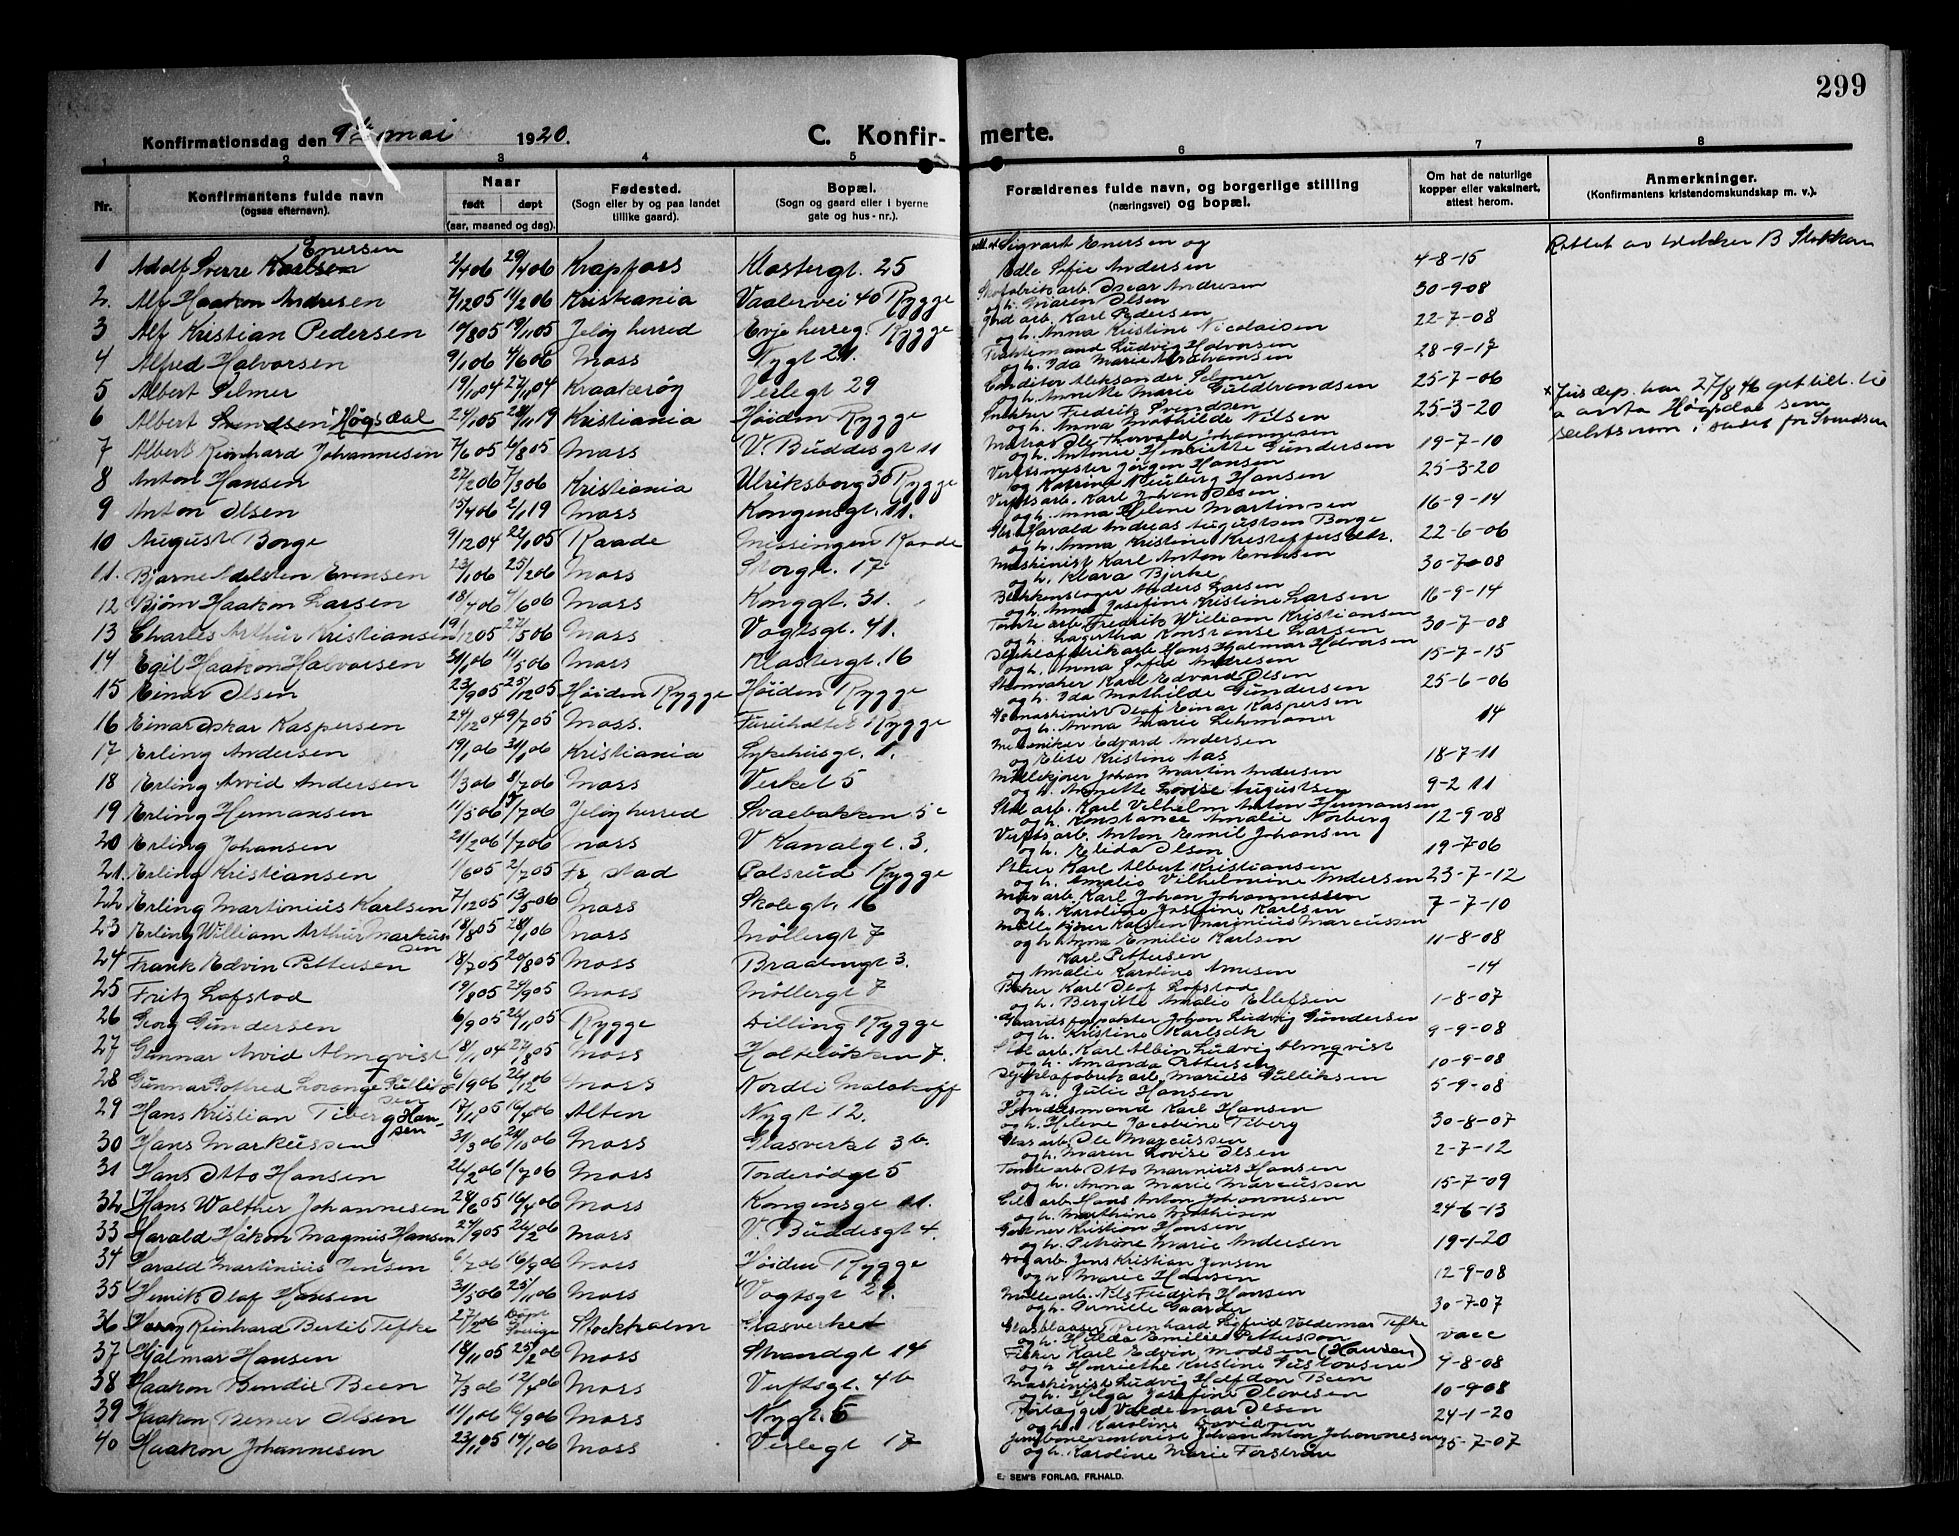 299
Konfirmationsdag den 9de mai 1920.
C. Konfir-merte.
1 2 3 4 5 6 7 8
Nr.
Konfirmantens fulde navn
(ogsaa efternavn).
Naar
født døpt
(aar, maaned og dag).
Fødested.
(Sogn eller by og paa landet
tillike gaard).
Bopæl.
(Sogn og gaard eller i byerne
gate og hus-nr.).
Forældrenes fulde navn, og borgerlige stilling
(næringsvei) og bopæl.
Om hat de naturlige
kopper eller vaksinert,
attest herom.
Anmerkninger.
(Konfirmantens kristendomskundskap m. v.).
Enersen
1 Adolf Sverre Karlsen 2/4 06 29/4 06 Krapfoss Klostergt. 25 Sigvart Enersen og
Edle Sofie Andersen 4-8-15
2. Alf Haakon Andresen 7/12 05 11/2 06 Kristiania Vaalervei 40 Rygge Skofabrikarb. Oscar Andresen
og h. Maren Olsen 30-9-08
3 Alf Kristian Pedersen 10/8 05 19/11 05 Jeløy herred Evje herreg. Rygge arb. Karl Pedersen
og h. Anna Kristine Nicolaisen 22-7-08
4 Alfred Halvorsen 9/1 06 4/6 06 Moss Nygt 21. Ludvig Halvorsen
og h. Ida Marie Abrahamsen 28-9-17
5 Albert Selmer 19/1 04 27/11 04 Kraakerøy Verlegt 29 Conditor Aleksander Selmer
og h. Annette Marie Guldbrandsen 25-7-06
6 Albert Svendsen Høgsdal 24/1 05 28/11 19 Kristiania Høiden Rygge Snekker Fredrik Svendsen
og h. Anna Mathilde Nilsen 25-3-20 x Jus. dep. har 27/8 46 gitt till. til
å anta Høgsdal som
slektsnavn i stedet for Svendsen
7 Albert Reinhard Johannesen 7/6 05 6/8 05 Moss V. Buddesgt 11 Matros Ole Thorvald Johannesen
og h. Antonie Henriette Gundersen 19-7-10
8 Anton Hansen 22/2 06 7/3 06 Kristiania Ulriksborg 30 Rygge Verftsmester Jørgen Hansen
og Katrine Neuberg Hansen 25-3-20
9 Anton Olsen 15/4 06 2/1 19 Moss Kongensgt. 11. Verftsarb. Karl Johan Olsen
og h. Anna Helene Martinsen 16-9-14
10 August Borge 9/12 04 22/1 05 Raade Missingen Raade Harald Andreas Augustsen Borge
og h. Anna Kristine Kristoffersdtr. 22-6-06
11. Bjarne Adelsten Evensen 23/1 06 25/2 06 Moss Storgt. 17 Maskinist Karl Anton Evensen
og h. Klara Bjerke 30-7-08
12 Bjørn Haakon Larsen 18/4 06 4/6 06 Moss Konggt. 31. Blikkenslager Anders Larsen
og h. Anna Josefine Kristine Larsen 16-9-14
13 Charles Arthur Kristiansen 19/12 05 27/5 06 Moss Vogtsgt. 41. Tomtearb. Fredrik William Kristiansen
og h. Lagertha Konstanse Larsen 30-7-08
14. Egil Haakon Halvorsen 31/1 06 11/5 06 Moss Klostergt. 16 Hans Hjalmar Halvorsen
og h. Anna Sofie Andresen 15-7-15
15 Einar Olsen 23/9 05 25/12 05 Høiden Rygge Høiden Rygge Skomaker Karl Edvard Olsen
og h. Ida Mathilde Gundersen 25-6-06
16 Einar Oskar Kaspersen 24/12 04 9/7 05 Moss. Furuholtet Rygge maskinist Olaf Einar Kaspersen
og h. Anna Marie Lehmann 14
17 Erling Andersen 19/1 06 31/1 06 Kristiania Sykehusgt. 1. Mekaniker Edvard Andersen
og Elise Kristine Aas 18-7-11
18 Erling Arvid Andersen 1/3 06 8/7 06 Moss Verket 5 Møllekjører Johan Martin Andersen
og h. Annette Lovise Augustsen 9-2 11
19 Erling Hermansen 11/5 06 15/7 06 Jeløy herred Svaebakken 5c arb. Karl Vilhelm Anton Hermansen
og h. Konstance Amalie Norberg 12-9-08
20 Erling Johansen 21/2 06 1/7 06 Moss V. Kanalgt. 3. Verftsarb. Anton Emil Johansen
og h. Elida Olsen 19-7-06
21. Erling Kristiansen 1/6 05 2/7 05 Fr.stad Palsrud Rygge Karl Albert Kristiansen
og h. Amalie Vilhelmine Andersen 23-7-12
22 Erling Martinius Karlsen 7/12 05 13/5 06 Moss Skolegt. 16 Murarb. Karl Johan Johannessen
og h. Karoline Josefine Karlsen 7-7-10
23 Erling William Arthur Markus-
sen 18/8 05 28/1 06 Moss Møllergt 7 Møllekjører Karsten Marinius Marcussen
og h. Anna Emilie Karlsen 11-8-08
24 Frank Edvin Pettersen 18/7 05 20/8 05 Moss Braatengt 3. Karl Pettersen
og Amalie Karoline Arnesen -14
25 Fritz Lofstad 19/8 05 24/9 05 Moss Møllergt 7 Baker Karl Olaf Lofstad
og h. Bergitte Amalie Ellefsen 1-8-07
26 Georg Gundersen 6/9 05 26/11 05 Rygge Dilling Rygge Gaardsforpakter Johan Ludvig Gundersen
og h. Kristine Karlsdtr 9-9-08
27 Gunnar Arvid Almqvist 18/11 04 27/8 05 Moss Holteløkken 7. arb. Karl Albin Ludvig Almqvist
og h. Amanda Pettersen 10-9-08
28 Gunnar Gotfred Lorange Gullik-
sen 6/9 06 26/12 06 Moss Nordli Malakoff Marius Gulliksen
og h. Julie Hansen 5-9-08
29 Hans Kristian Tiberg Han-
sen 17/11 05 16/4 06 Alten Nygt 12. Handelsmand Karl Hansen
og h. Helene Jacobine Tiberg 30-8-07
30 Hans Markussen 31/3 06 21/10 06 Moss Glasverket 3b. Glasarb. Ole Marcussen
og h. Maren Lovise Olsen 2-7-12
31 Hans Otto Hansen 26/2 06 1/7 06 Moss Torderødgt 5 Tomtearb. Otto Marinius Hansen
og h. Anna Marie Marcussen 15-7-09
32 Hans Walther Johannesen 28/6 05 16/4 06 Moss Kongensgt 11. arb. Hans Anton Johannesen
og h. Marthine Mathisen 24-6-13
33 Harald Håkon Magnus Hansen 24/9 05 26/2 06 Moss V. Buddesgt 4. Gartner Kristian Hansen
og h. Petrine Marie Andersen 19-1-20
34 Harald Martinius Jensen 6/7 06 16/9 06 Moss Høiden Rygge arb. Jens Kristian Jensen
og h. Marie Hansen 12-9-08
35 Henrik Olaf Hansen 31/5 06 25/11 06 Moss Vogtsgt 29. Møllearb. Nils Fredrik Hansen
og h. Pernille Gaarder 30-7-07
36 Harry Reinhard Bertil Tefke 27/2 06 Døpt
Sverige Stockholm Glasverket Glasblaaser Reinhard Sigfrid Valdemar Tefke
og h. Hulda Emilie Pettersson vacc
37 Hjalmar Hansen 18/11 05 25/2 06 Moss Strandgt 14 Fisker Karl Edvin Madsen (Hansen)
og h. Henriethe Kristine Gustavsen 4-8-08
38 Haakon Bendix Been 7/3 06 12/4 06 Moss Verftsgt. 4b Maskinist Ludvig Halfdan Been
og h. Helga Josefine Olavesen 10-9-08
39 Haakon Berner Olsen 11/1 06 16/9 06 Moss Nygt. 5 Valdemar Olsen
og h. Karoline Davidsen 24-1-20
40 Haakon Johannesen 23/11 05 14/1 06 Moss Verlegt 17 Johan Anton Johannesen
og h. Karoline Marie Forström 25-7-07
Rettet av klokker B Stokken
E. SEM'S FORLAG, FR.HALD.